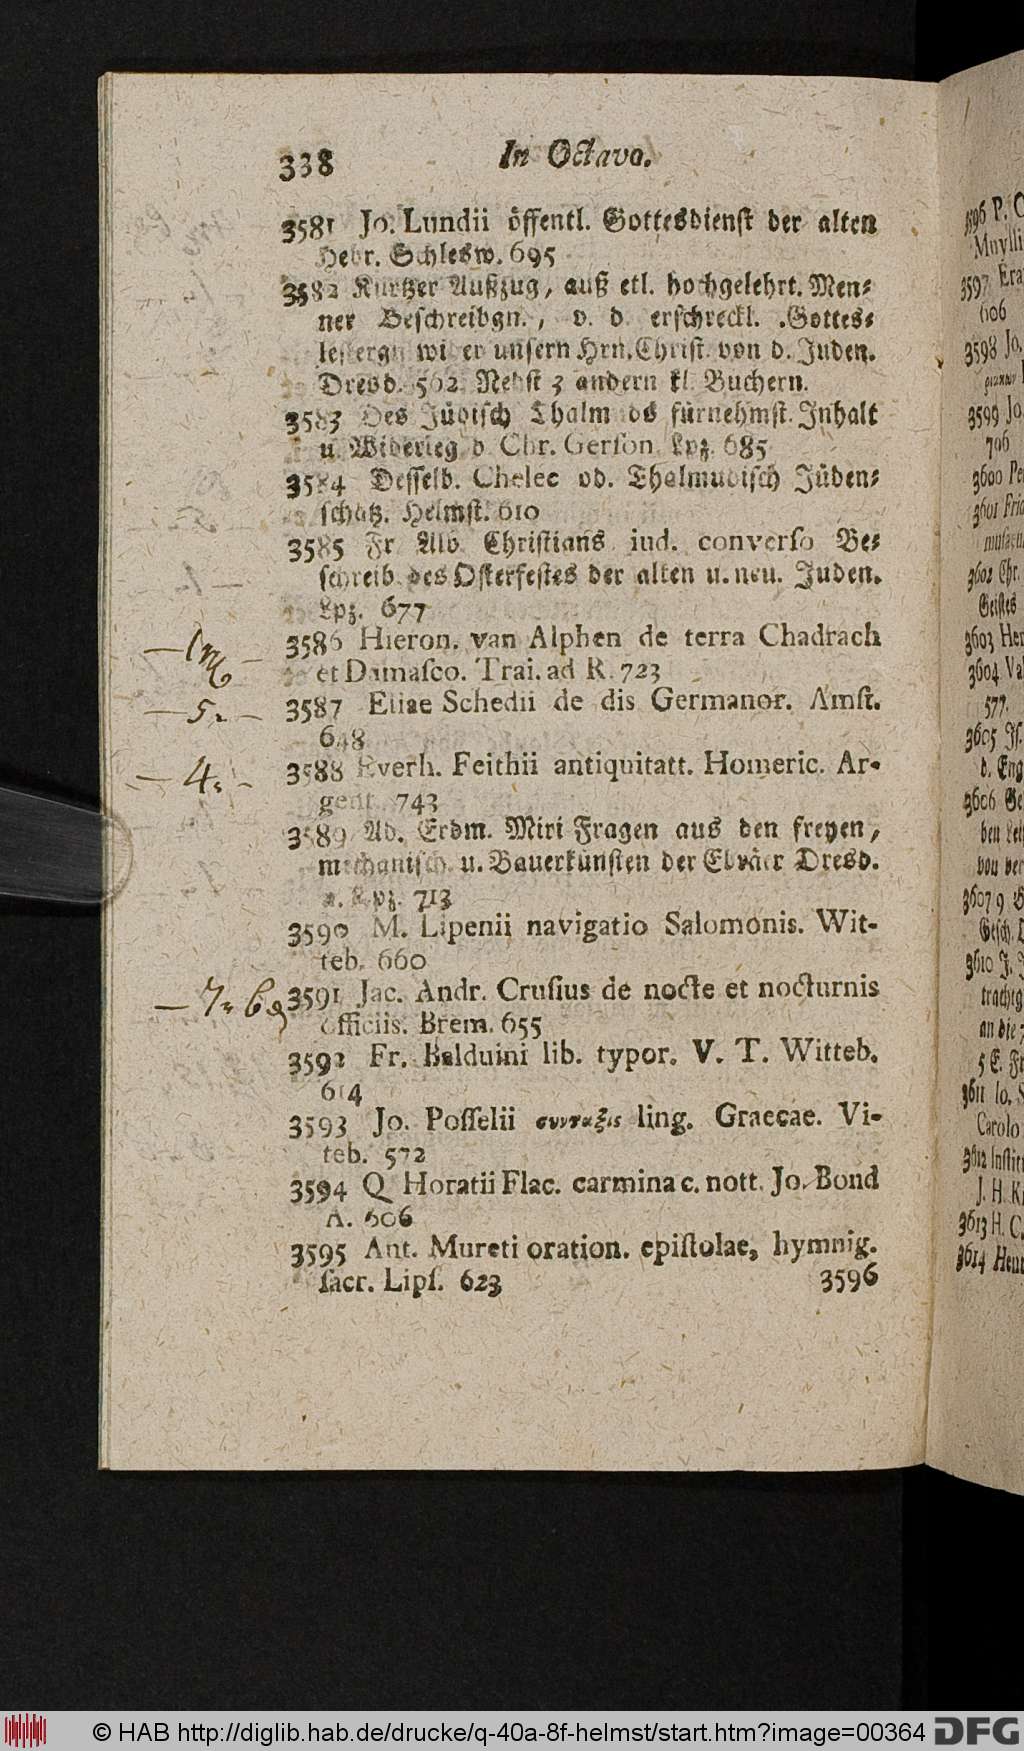 338 In Octavo.
3581 Jo. Lundii öffentl. Gottesdienst der alten
Hebr. Schlesw. 695
3582 Kurtzer Außzug, auß etl. hochgelehrt. Men-
ner Beschreibgn., v. d. erschreckl. Gottes-
lestergn wider unsern Hrn. Christ. von d. Juden.
Dresd. 562 Nebst 3 andern kl. Buchern.
3583 Des Jüdisch Thalmuds fürnehmst. Inhalt
u. Widerleg. d. Chr. Gerson. Lpz. 685
3584 Desselb. Chelec od. Thalmudisch Jüden-
schatz. Helmst. 610
3585 Fr Alb. Christians iud. converso Be-
schreib. des Osterfestes der alten u. neu. Juden.
Lpz. 677
— 1 — 3586 Hieron. van Alphen de terra Chadrach
et Damasco. Trai. ad R. 723
— 5. — 3587 Eliae Schedii de dis Germanor. Amst.
648
— 4. — 3588 Everh. Feithii antiquitatt. Homeric. Ar-
gent. 743
3589 Ad. Erdm. Miri Fragen aus den freyen,
mechanisch. u. Bauerkünsten der Ebräer Dresd.
u. Lpz. 713
3590 M. Lipenii navigatio Salomonis. Wit-
teb. 660
— 7. 6 3591 Jac. Andr. Crusius de nocte et nocturnis
officiis. Brem. 655
3592 Fr. Balduini lib. typor. V. T. Witteb.
614
3593 Jo. Posselii συνταξις ling. Graecae. Vi-
teb. 572
3594 Q Horatii Flac. carmina c. nott. Jo. Bond
A. 606
3595 Ant. Mureti oration. epistolae, hymniq.
sacr. Lips. 623 3596
3596 P.
3597 Era
606
3598 Jo.
3599 Jo.
706
3600
3601
3602 Chr.
Geistes
3603 Her
3604 Va
577.
3605
d. Eng
3606 Ge
von
3607
Gesch.
3610 J.
an die
3611 Io.
Carolo
3612 Instit
J. H. K
3613 H. C.
3614 Henr
© HAB http://diglib.hab.de/drucke/q-40a-8f-helmst/start.htm?image=00364 DFG